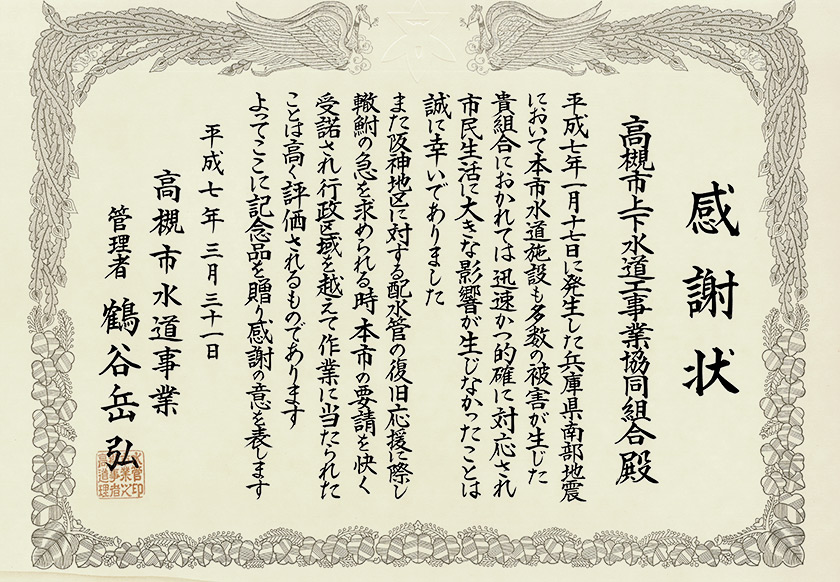 感謝状
高槻市上下水道工事業協同組合殿
平成七年一月十七日に発生した兵庫県南部地震
において本市水道施設も多数の被害が生じた
貴組合におかれては迅速かつ的確に対応され
市民生活に大きな影響が生じなかったことは
誠に幸いでありました
また阪神地区に対する配水管の復旧応援に際し
轍鮒の急を求められる時本市の要請を快く
受諾され行政区域を越えて作業に当たられた
ことは高く評価されるものであります
よってここに記念品を贈り感謝の意を表します
平成七年三月三十一日
高槻市水道事業
管理者 鶴谷岳弘